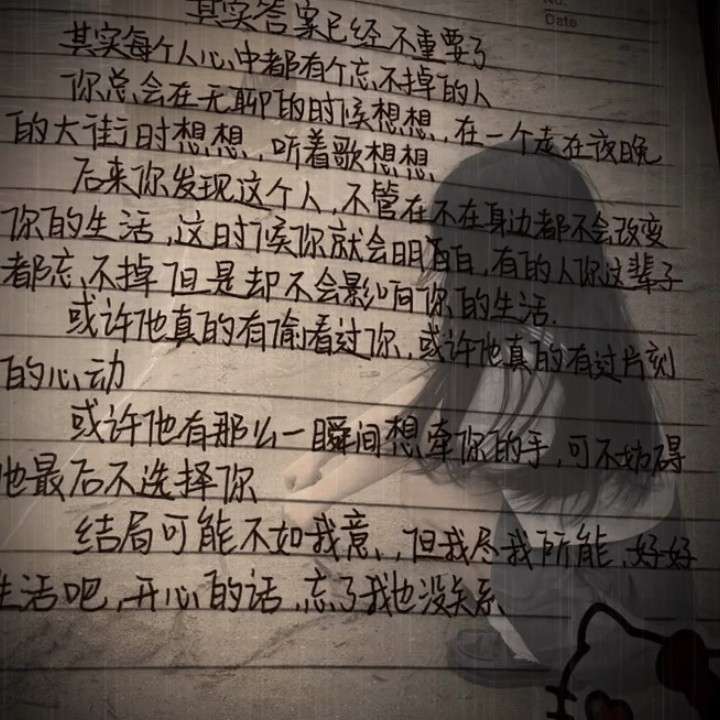 No.
Date
其实答案已经不重要了
其实每个人心中都有个忘不掉的人
你总会在无聊的时候想想,在一个走在夜晚
的大街时想想,听着歌想想
后来你发现这个人,不管在不在身边都不会改变
你的生活,这时候你就会明白白,有的人你这辈子
都忘不掉但是却不会影响你的生活.
或许他真的有偷看过你,或许他真的有过片刻
的心动
或许他有那么一瞬间想牵你的手,可不妨碍
他最后不选择你
结局可能不如我意,,但我尽我所能,好好
生活吧,开心的话,忘了我也没关系